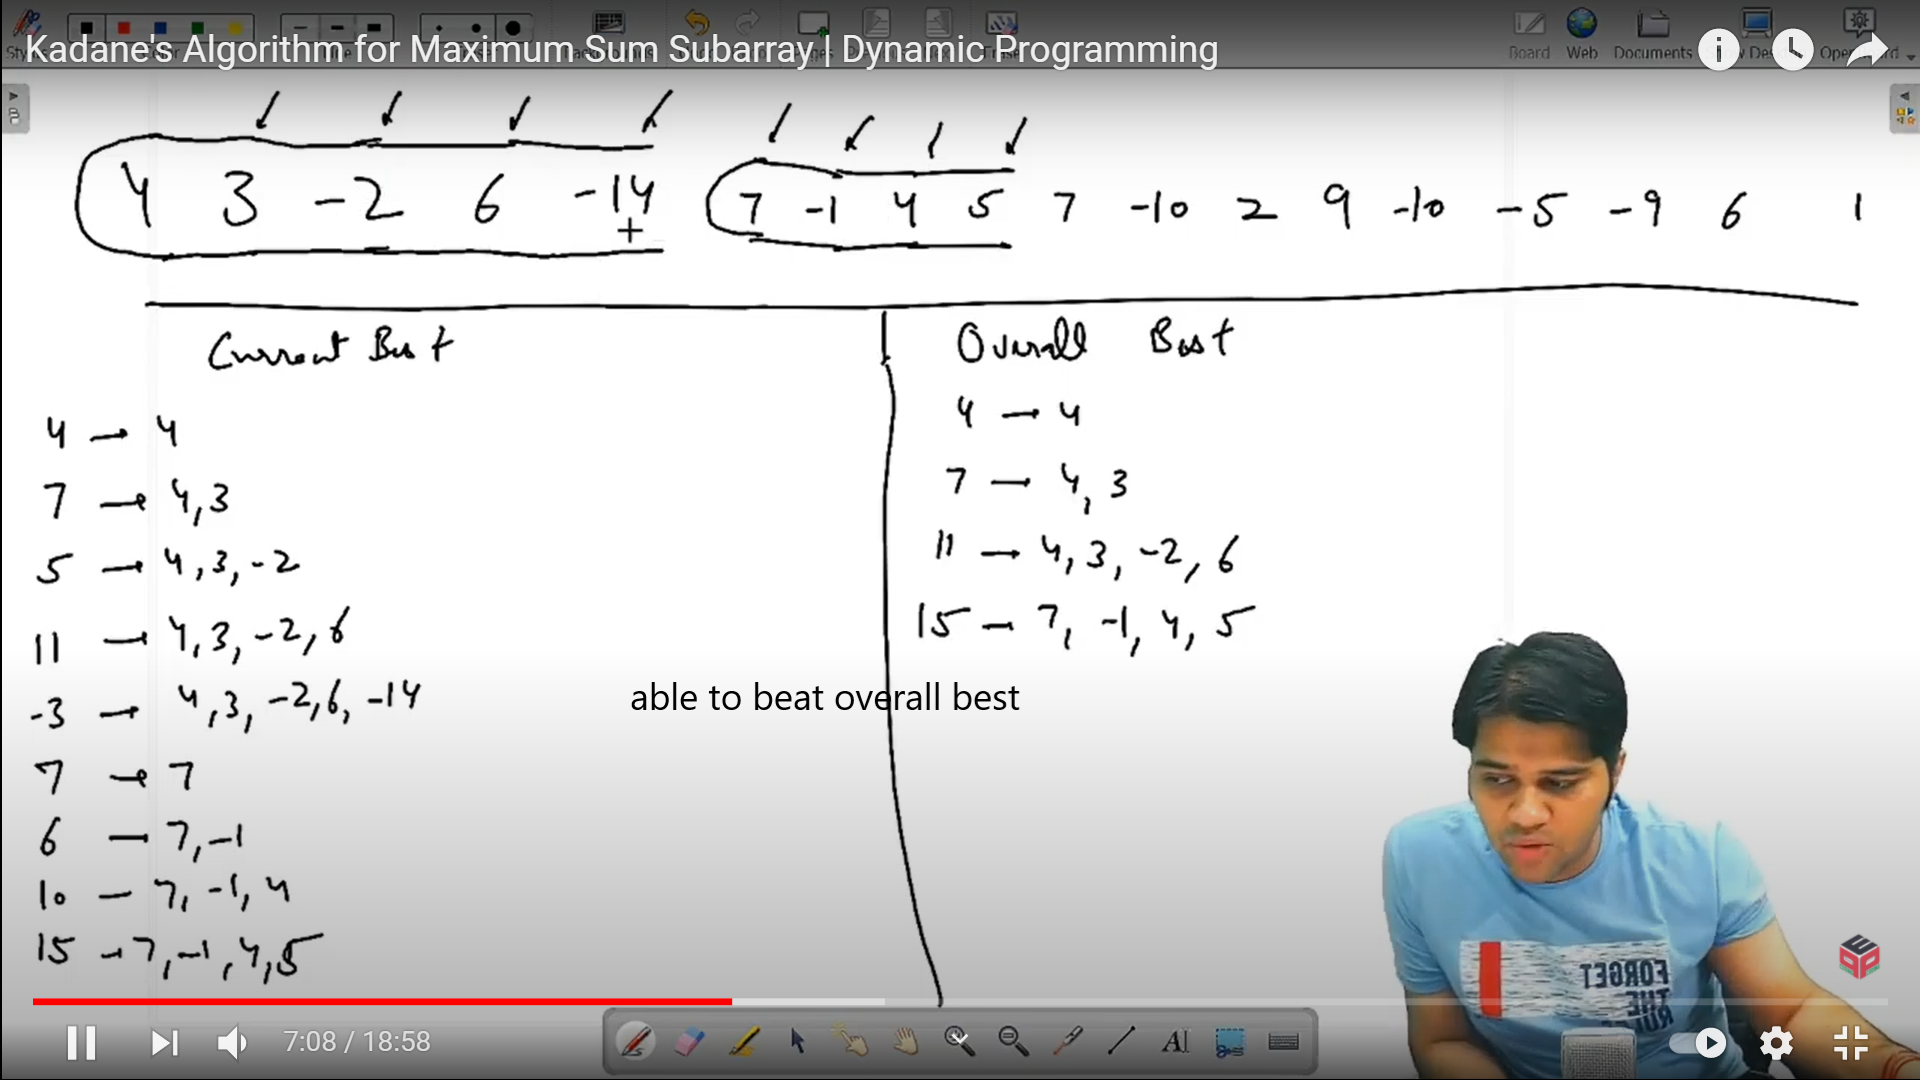 Kadane's Algorithm for Maximum Sum Subarray | Dynamic Programming
Board Web Documents
4 3 -2 6 -14 7 -1 4 5 7 -10 2 9 -10 -5 -9 6 1
+
Current Best
Overall Best
4 → 4
7 → 4,3
5 → 4,3,-2
11 → 4,3,-2,6
-3 → 4,3,-2,6,-14
7 → 7
6 — 7,-1
10 — 7,-1,4
15 → 7,-1,4,5
4 → 4
7 — 4,3
11 → 4,3,-2,6
15 — 7,-1,4,5
able to beat overall best
FORGET
THE
7:08 / 18:58